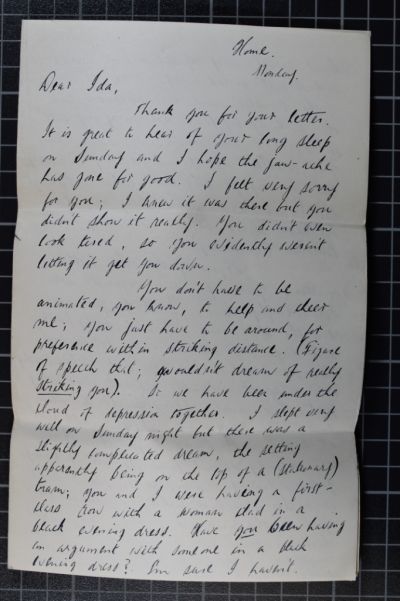 Home.
Monday.
Dear Ida,
Thank you for your letter.
It is great to hear of your long sleep
on Sunday and I hope the jaw-ache
has gone for good. I felt very sorry
for you; I knew it was there but you
didn't show it really. You didn't even
look tired, so you evidently weren't
letting it get you down.
You don't have to be
animated, you know, to help and cheer
me; you just have to be around, for
preference within striking distance. (Figure
of speech that; wouldn't dream of really
striking you). So we have been under the
cloud of depression together. I slept very
well on Sunday night but there was a
slightly complicated dream, the setting
apparently being on the top of a (stationary)
tram; you and I were having a first-
class row with a woman clad in a
black evening dress. Have you been having
an argument with someone in a black
evening dress? I'm sure I haven't.